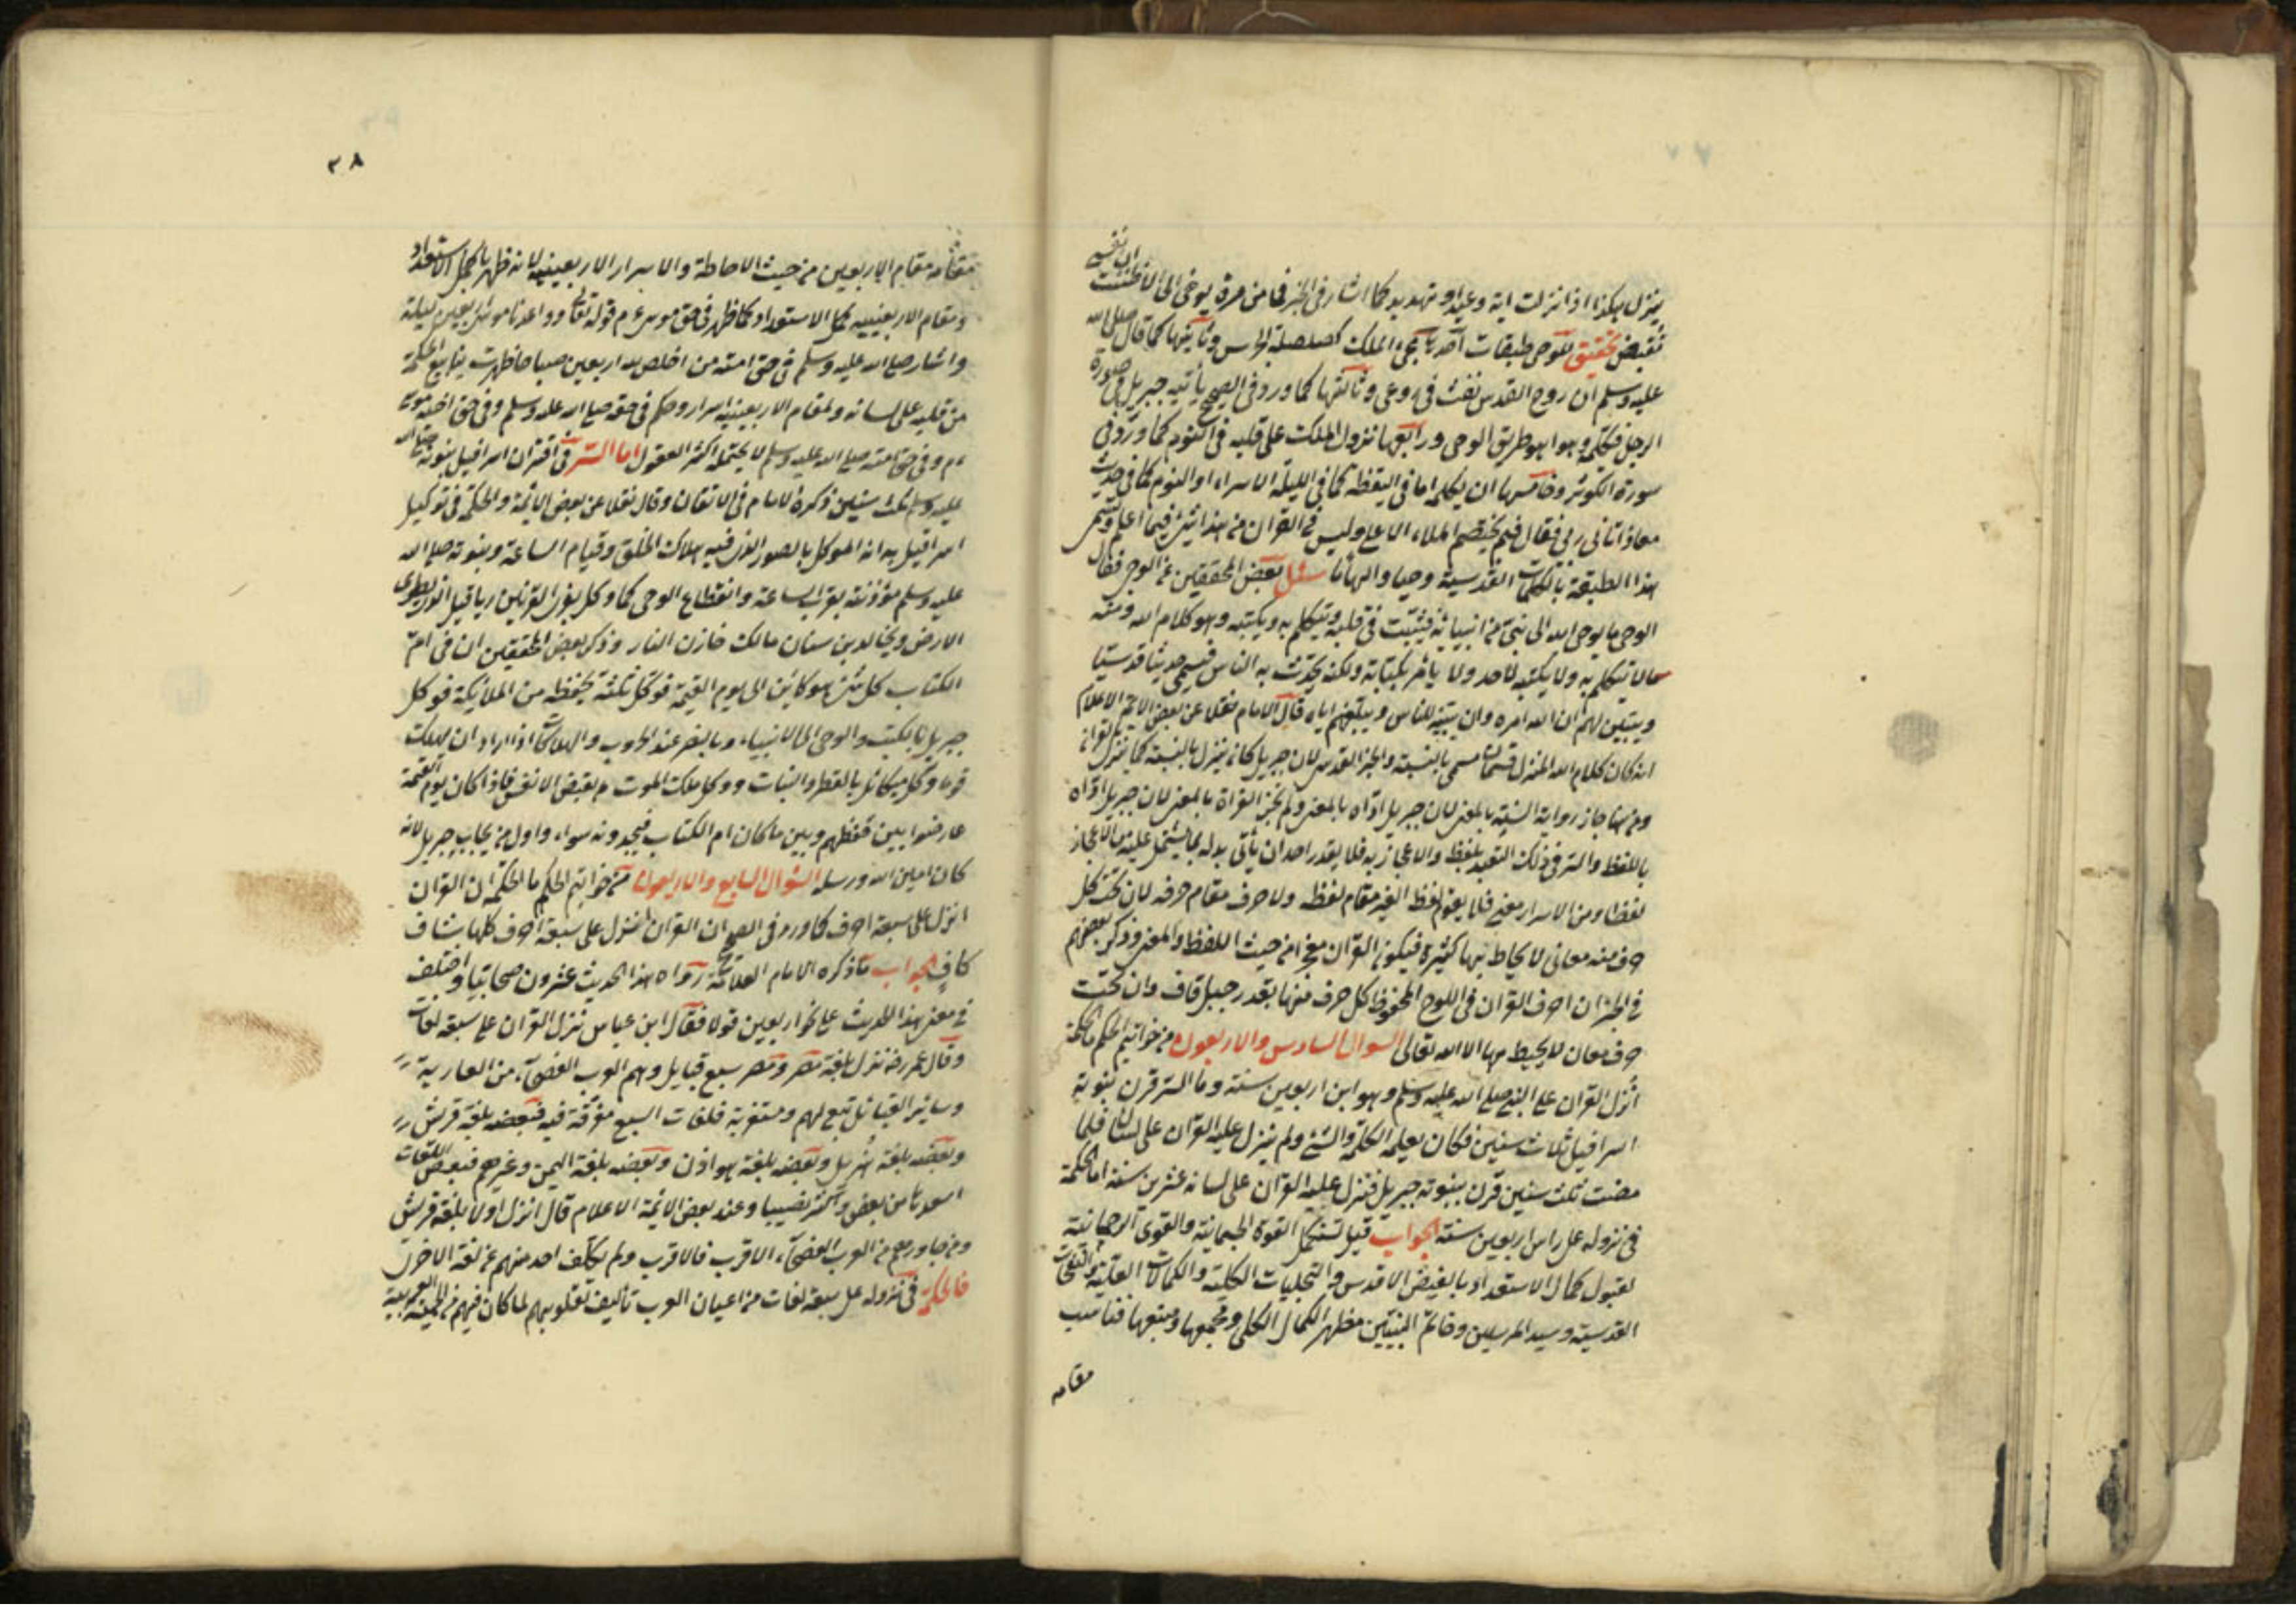 ينزل هكذا اذا نزلت اية وعيد او تهديد كما اشار في الخبر فما من مرة يوحى الى الا ظننت ان نفسى
تقبض تحقيق للوحى طبقات احديها مجئ الملك كصلصلة الجرس وثانيها كما قال صلى الله
عليه وسلم ان روح القدس نفث فى روعى وثالثها كما ورد فى الصحيح يأتيه جبريل فى صورة
الرجل فيكلمه وهو اهو طريق الوحى ورابعها نزول الملك على قلبه فى النوم كما ورد فى
سورة الكوثر وخامسها ان يكلمه اما فى اليقظة كما فى الليلة الاسراء او النوم كما فى حديث
معاذ اتانى ربى فقال فيم يختصم الملاء الاعلى وليس فى القرآن من هذا شئ فيما اعلم وتسمى
هذا الطبقة بالكلمات القدسية وحيا والهاما سئل بعض المحققين عن الوحى فقال
الوحى ما يوحى الله الى نبى من انبيائه فيثبت فى قلبه ويتكلم به ويكتبه وهو كلام الله ومنه
ما لا يتكلم به ولا يكتبه لاحد ولا يامر بكتابة ولكنه يحدث به الناس فيسمى حديثا قدسيا
ويتبين لهم ان الله امره وان يبينه للناس ويبلغهم اياه قال الامام نقلا عن بعض الائمة الاعلام
ان كان كلام الله المنزل قسمان مسمى بالسنة والخبر القدس لان جبريل كان ينزل بالسنة كما ينزل بالقرآن
ومن هنا جاز رواية السنة بالمعنى لان جبريل اداه بالمعنى ولم يجز القراة بالمعنى لان جبريل اداه
باللفظ والسر فى ذلك التعبد بلفظه والاعجاز به فلا يقدر احد ان يأتى بدله بما يشتمل عليه من الاعجاز
لفظا ومن الاسرار معنى فلا يقوم لفظ الغير مقام لفظه ولا حرف مقام حرفه لان تحت كل
حرف منه معانى لا يحاط بها كثيرة فيكون القرآن معجزا من حيث اللفظ والمعنى وذكر بعضهم
فى الخبر ان احرف القرآن فى اللوح المحفوظ كل حرف منها بقدر جبل قاف وان تحت
حرف معان لا يحيط بها الا الله تعالى السؤال السادس والاربعون من خواتيم الحكم ما الحكمة
انزل القرآن على النبى صلى الله عليه وسلم وهو ابن اربعين سنة وما السر قرن بنوبة
اسرافيل ثلاث سنين فكان يعلمه الكلمة والشئ ولم ينزل عليه القرآن على لسانه فلما
مضت ثلث سنين قرن بنبوته جبريل فنزل عليه القرآن على لسانه عشرين سنة اما الحكمة
فى نزوله على راس اربعين سنة الجواب قيل لتستكمل القوة الجسمانية والقوى الروحانية
لقبول كمال الاستعداد بالفيض الاقدس والتجليات الكلية والكمالات العلية والنفحات
القدسية وسيد المرسلين وخاتم النبيين مظهر الكمال الكلى ومجمعها ومنبعها فناسب
مقامه
٣٨
مقامه مقام الاربعين من حيث الاحاطة والاسرار الاربعينية لانه ظهر باكمل الاستعداد
ومقام الاربعينية كمل الاستعداد كما ظهر فى حق موسى ع م قوله تعالى وواعدنا موسى اربعين ليلة
واشار صلى الله عليه وسلم فى حق امته من اخلص لله اربعين صباحا ظهرت ينابيع الحكمة
من قلبه على لسانه ولمقام الاربعينية اسرار وحكم فى حقه صلى الله عليه وسلم وفى حق اخيه موسى
ع م وفى حق امته صلى الله عليه وسلم لا يحتمله اكثر العقول اما السر فى اقتران اسرافيل بنبوته صلى الله
عليه وسلم ثلث سنين ذكره الامام فى الاتقان وقال نقلا عن بعض الائمة والحكمة فى توكيل
اسرافيل به انه الموكل بالصور الذى فيه هلاك الخلق وقيام الساعة ونبوته صلى الله
عليه وسلم مؤذنة بقرب الساعة وانقطاع الوحى كما وكل بذى القرنين رياقيل الذى يطوى
الارض وبخالد بن سنان مالك خازن النار وذكر بعض المحققين ان فى ام
الكتاب كل شئ هو كائن الى يوم القيمة فوكل ثلثة بحفظه من الملائكة فوكل
جبريل بالكتب والوحى الى الانبياء وبالنصر عند الحروب والهلاك اذا اراد ان يهلك
قوما ووكل ميكائل بالقطر والنبات ووكل ملك الموت م بقبض الانفس فاذا كان يوم القيمة
عارضوا بين حفظهم وبين ما كان ام الكتاب فيجدونه سواء واول من يحاب جبريل لانه
كان امين الله ورسله السؤال السابع والاربعون من خواتيم الحكم ما الحكمة ان القرآن
انزل على سبعة احرف كما ورد فى الصحيح ان القرآن انزل على سبعة احرف كلها شاف
كاف الجواب ما ذكره الامام العلامة رواه هذا الحديث عشرون صحابيا واختلف
فى معنى هذا الحديث على نحو اربعين قولا فقال ابن عباس نزل القرآن على سبعة لغات
وقال عمر رض نزل بلغة مضر ومضر سبع قبايل وهم العرب الفصحاء من العاربة
وسائر القبائل تبع لهم ومستغربة فلغات السبع مفرقة فيه فبعضه بلغة قريش
وبعضه بلغة هذيل وبعضه بلغة هوازن وبعضه بلغة اليمن وغيرهم فبعض اللغات
اسعد بها من بعض واكثر نصيبا وعند بعض الائمة الاعلام قال انزل اولا بلغة قريش
ومن جاورهم من العرب الفصحاء الاقرب فالاقرب ولم يكلف احد منهم عن لغة الاخرى
فالحكمة فى نزوله على سبعة لغات من اعيان العرب تأليف لقلوبهم لما كان فيهم من الحمية العربية